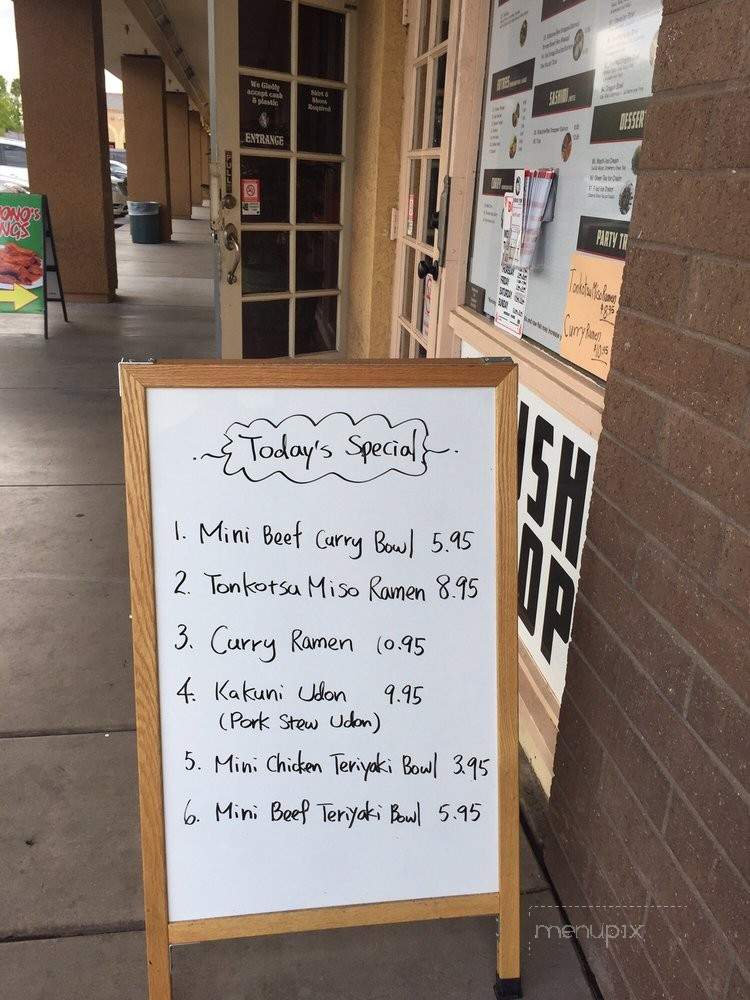 We Gladly
accept cash
& plastic
Shirt &
Shoes
Required
ENTRANCE
PULL
NGS
SASHIMI
DESSER
PARTY TR
Tonkotsu Miso Ramen
$8.95
Curry Ramen
$10.95
SH
OP
Today's Special
1. Mini Beef Curry Bowl 5.95
2. Tonkotsu Miso Ramen 8.95
3. Curry Ramen 10.95
4. Kakuni Udon 9.95
(Pork Stew Udon)
5. Mini Chicken Teriyaki Bowl 3.95
6. Mini Beef Teriyaki Bowl 5.95
menupix